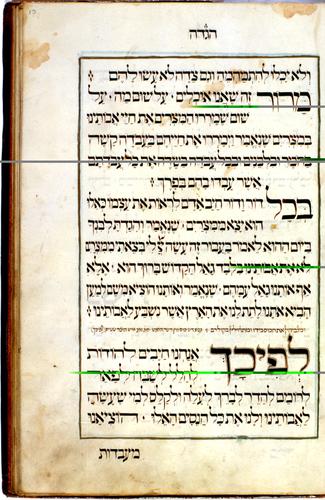 הגדה
ולא יכלו להתמהמה וגם צדה לא עשו להם :
מרור זה שאנו אוכלים · על שום מה · על
שום שמררו המצרים את חיי אבותינו
במצרים שנאמר וימררו את חייהם בעבדה קשה
אשר עבדו בהם בפרך :
בכל דור ודור חייב אדם לראות את עצמו כאלו
הוא יצא ממצרים · שנאמר והגדת לבנך
ביום ההוא לאמר בעבור זה עשה יי לי בצאתי ממצרים
לא את אבותינו בלבד גאל הקדוש ברוך הוא · אלא
אף אותנו גאל עמהם · שנאמר ואותנו הוציא משם למען
הביא אתנו לתת לנו את הארץ אשר נשבע לאבותינו :
לפיכך אנחנו חייבים להודות
להלל לשבח לפאר
לרומם להדר לברך לעלה ולקלס למי שעשה
לאבותינו ולנו את כל הנסים האלו · הוציאנו
מעבדות